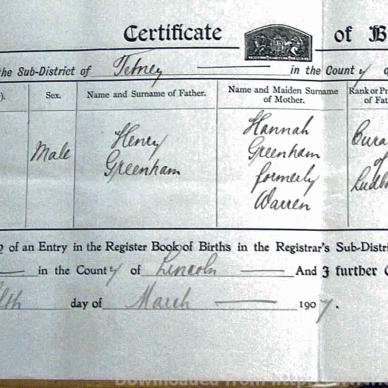 Certificate of B
the Sub-District of Tetney in the County
Sex. Name and Surname of Father. Name and Maiden Surname of Mother. Rank or Pr of Fat
Male Henry Greenham Hannah Greenham formerly Warren Cura of Ludb
of an Entry in the Register Book of Births in the Registrar's Sub-Distri
in the County of Lincoln And I further
lfth day of March 1907.
Downloaded from http